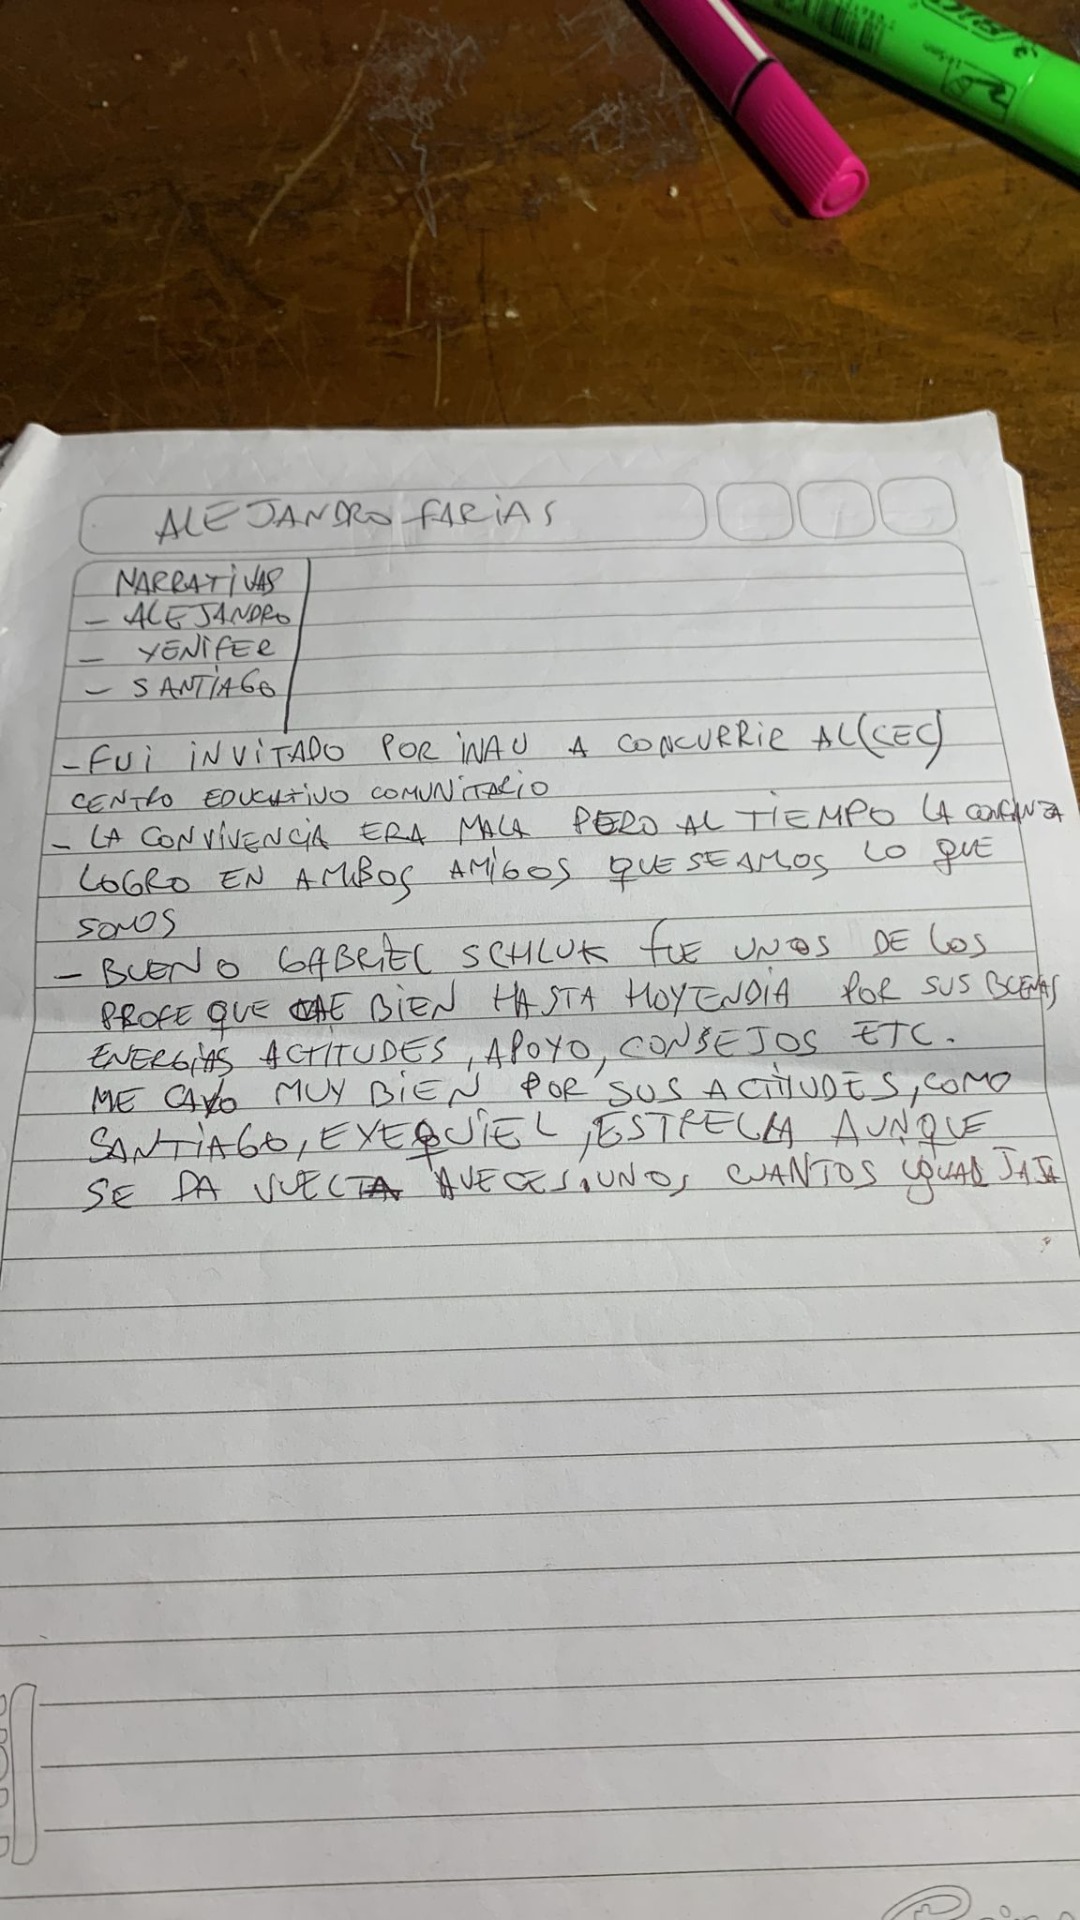 ALEJANDRO FARIAS
NARRATIVAS
- ALEJANDRO
- YENIFER
- SANTIAGO
- FUI INVITADO POR INAU A CONCURRIR AL (CEC)
CENTRO EDUCATIVO COMUNITARIO
- LA CONVIVENCIA ERA MALA PERO AL TIEMPO LA CONFIANZA
LOGRO EN AMBOS AMIGOS QUE SEAMOS LO QUE
SOMOS
- BUENO GABRIEL SCHLUK FUE UNOS DE LOS
PROFE QUE CAE BIEN HASTA HOYENDIA POR SUS BUENAS
ENERGIAS ACTITUDES, APOYO, CONSEJOS ETC.
ME CAYO MUY BIEN POR SUS ACTITUDES, COMO
SANTIAGO, EXEQUIEL, ESTRELLA AUNQUE
SE DA VUELTA AVECES. UNOS CUANTOS IGUAL JAJA